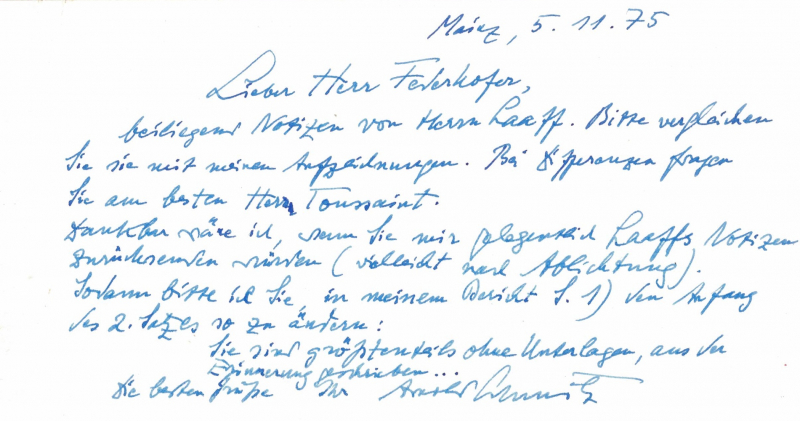 Mainz, 5. 11. 75
Lieber Herr Federhofer,
beiliegend Notizen von Herrn Laaff. Bitte vergleichen
Sie sie mit meinen Aufzeichnungen. Bei Differenzen fragen
Sie am besten Herrn Toussaint.
Dankbar wäre ich, wenn Sie mir gelegentlich Laaffs Notizen
zurücksenden würden (vielleicht nach Ablichtung).
Sodann bitte ich Sie, in meinem Bericht S. 1) den Anfang
des 2. Satzes so zu ändern:
Sie sind größtenteils ohne Unterlagen, aus der
Erinnerung geschrieben...
Die besten Grüße Ihr Arnold Schmitz